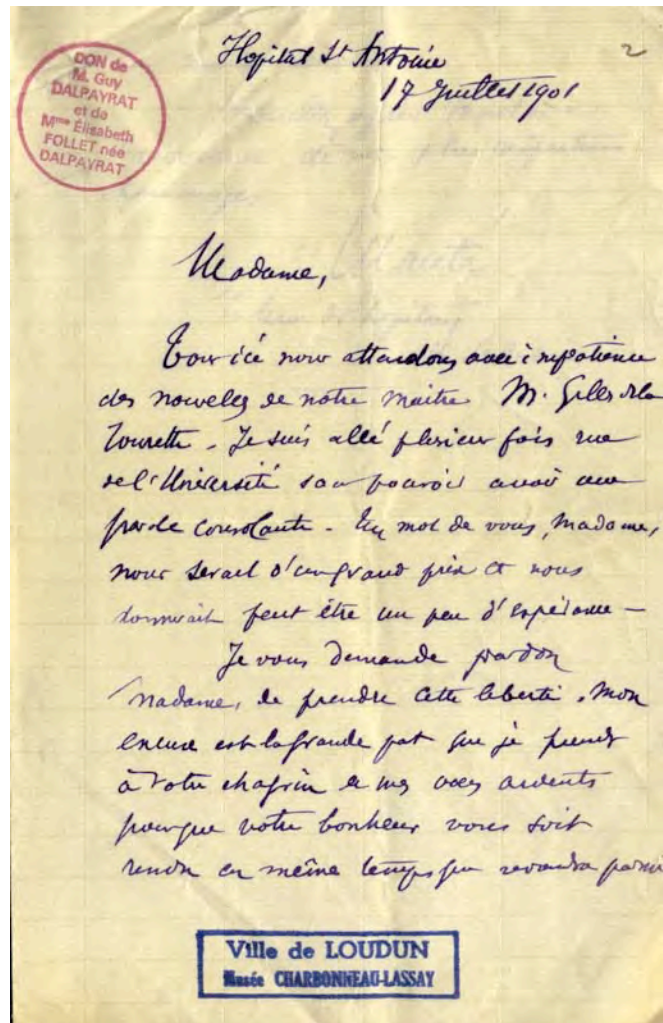 Hopital St Antoine
2
17 Juillet 1901
DON de
M. Guy
DALPAYRAT
et de
Mme Élisabeth
FOLLET née
DALPAYRAT
Madame,
Tous ici nous attendons avec impatience
des nouvelles de notre maitre M. Gilles de la
Tourette - Je suis allé plusieurs fois rue
de l'Université sans pouvoir avoir une
parole consolante - Un mot de vous, Madame,
nous serait d'un grand prix et nous
donnerait peut être un peu d'espérance -
Je vous demande pardon
Madame, de prendre cette liberté. Mon
excuse est la grande part que je prends
à votre chagrin & mes voeux ardents
pour que votre bonheur vous soit
rendu en même temps que reviendra parmi
Ville de LOUDUN
Musée CHARBONNEAU-LASSAY